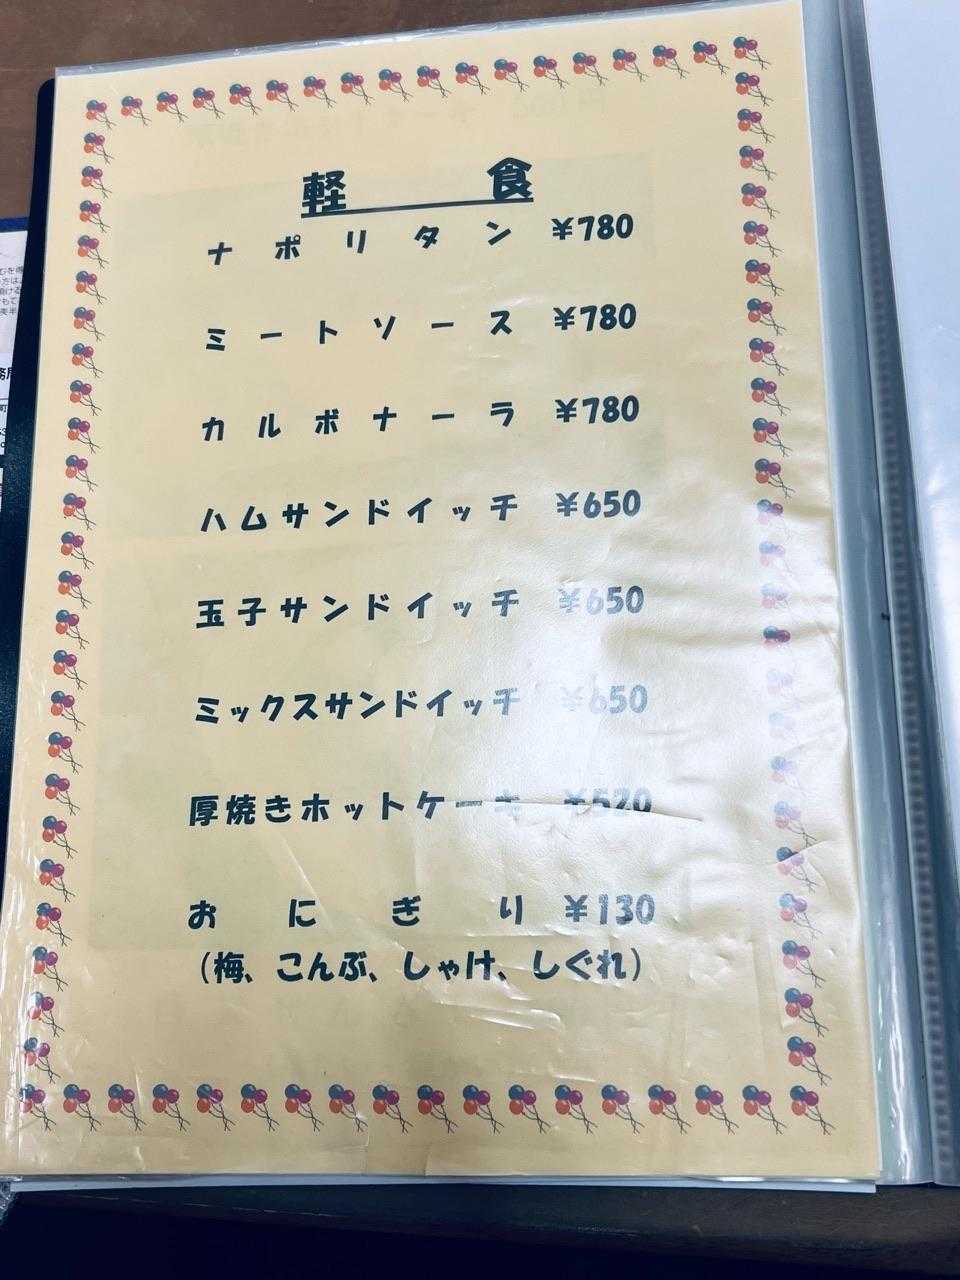 軽食
ナポリタン ¥780
ミートソース ¥780
カルボナーラ ¥780
ハムサンドイッチ ¥650
玉子サンドイッチ ¥650
ミックスサンドイッチ ¥650
厚焼きホットケーキ ¥520
おにぎり ¥130
(梅、こんぶ、しゃけ、しぐれ)